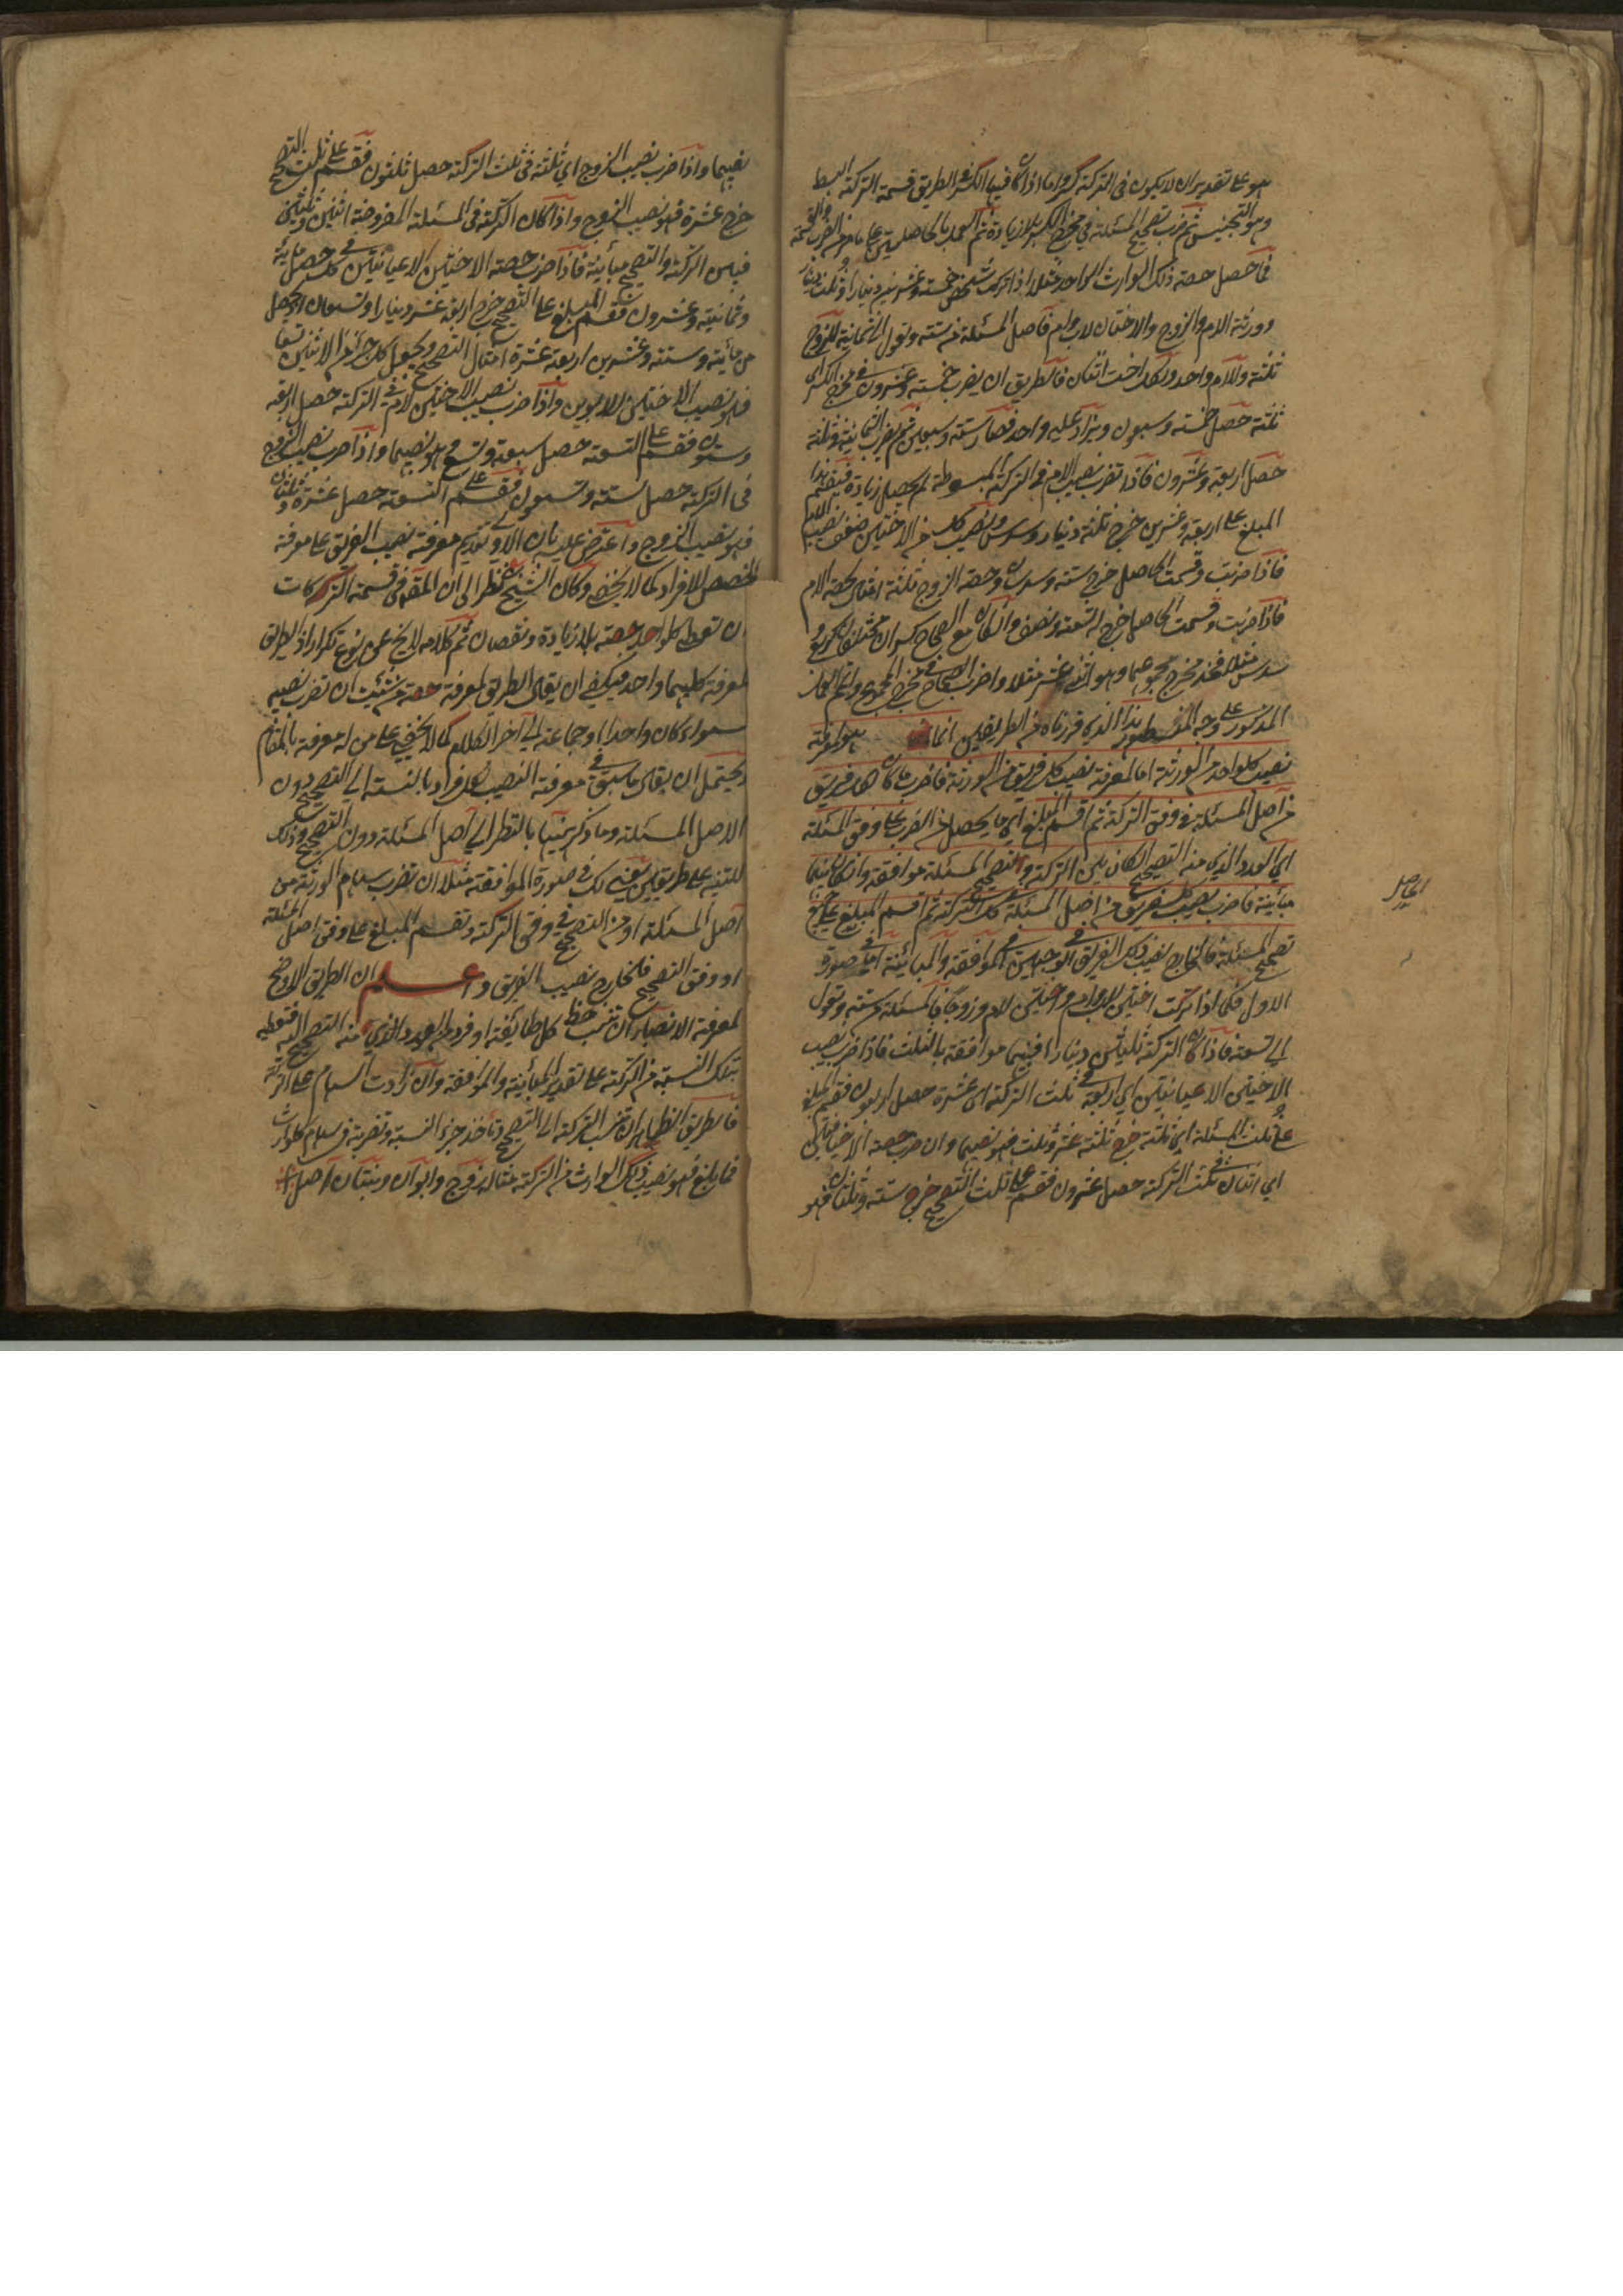 هو على تقدير ان لا يكون في التركة كسر واما اذا كان فيها الكسر فالطريق قسمة التركة البسط
وهو التجنيس ثم ضرب تصحيح المسئلة في مخرج الكسر بلا زيادة ثم العمل بالحاصلين على ما مر من الضرب والقسمة
فما حصل حصة ذلك الوارث الواحد مثلا اذا ترك شخص خمسة وعشرين دينارا وثلث دينار
وورثة الام والزوج والاختان لاب وام فاصل المسئلة من ستة وتعول الى ثمانية للزوج
ثلثة وللام واحد ولكل اخت اثنان فالطريق ان يضرب خمسة وعشرون في مخرج الكسر اي
ثلثة حصل خمسة وسبعون ويزاد عليه واحد فصار ستة وسبعين ثم يضرب الثمانية في ثلثة
حصل اربعة وعشرون فاذا تضرب نصيب الام في التركة المبسوطة لم يحصل زيادة فيقسم هذا
المبلغ على اربعة وعشرين خرج ثلثة دينار وسدس ونصيب كل من الاختين ضعف نصيب الام
فاذا ضربت وقسمت الحاصل خرج ستة وسدسان وحصة الزوج ثلثة امثال حصة الام
فاذا ضربت وقسمت الحاصل خرج له تسعة ونصف وان كان مع الصحاح كسران مختلفان كربع و
سدس مثلا فخذ مخرج مجموعهما وهو اثنى عشر مثلا واضرب الصحاح في مخرج المجموع واتم العمل
المذكور على وجه المسطور هذا الذي قررناه من الطريقين انما هو لمعرفة
نصيب كل واحد من الورثة اما لمعرفة نصيب كل فريق من الورثة فاضرب ما كان لكل فريق
من اصل المسئلة في وفق التركة ثم اقسم المبلغ اي ما يحصل من الضرب على وفق المسئلة
اي العدد الذي منه التصحيح ان كان بين التركة وتصحيح المسئلة موافقة وان كان بينهما
مباينة فاضرب نصيب كل فريق من اصل المسئلة في كل التركة ثم اقسم المبلغ على جميع
تصحيح المسئلة فالخارج نصيب ذلك الفريق في الوجهين في الموافقة والمباينة اما في صورة
الاول فكما اذا تركت اختين لاب وام واختين لام وزوجا فالمسئلة من ستة وتعول
الى تسعة فاذا كان التركة ثلثين دينارا فبينهما موافقة بالثلث فاذا ضرب نصيب
الاختين الاعيانيتين اي اربعة في ثلث التركة اي عشرة حصل اربعون فقسم المبلغ
على ثلث المسئلة اي ثلثة خرج ثلثة عشر وثلث فهو نصيبهما وان ضرب حصة الاخيافيتين
اي اثنان في ثلث التركة حصل عشرون فقسم على ثلث التصحيح خرج ستة وثلثان فهو
الحاصل
نصيبهما واذا ضرب نصيب الزوج اي ثلثة في ثلث التركة حصل ثلثون فقسم على ثلث التصحيح
خرج عشرة فهو نصيب الزوج واذا كان التركة في المسئلة المفروضة اثنين وثلثين
فبين التركة والتصحيح مباينة فاذا ضرب حصة الاختين الاعيانيتين في كل حصل مائة
وثمانية وعشرون فقسم المبلغ على التصحيح خرج اربعة عشر دينارا وتسعان اذ يحصل
من مائة وستة وعشرين اربعة عشرة امثال التصحيح ويجعل كل جزء من الاثنين تسعا
فهو نصيب الاختين لابوين واذا ضرب نصيب الاختين لام في التركة حصل اربعة
وستون فقسم على التسعة حصل سبعة وتسع فهو نصيبهما واذا ضرب نصيب الزوج
في التركة حصل ستة وتسعون فقسم على التسعة حصل عشرة وثلثان
فهو نصيب الزوج واعترض عليه بان الاولى تقديم معرفة نصيب الفريق على معرفة
الحصص للافراد كما لا يخفى وكان الشيخ نظر الى ان المقصود في قسمة التركات
ان تعطى كل واحد حصته بلا زيادة ونقصان ثم كلامه لا يخ عن نوع تكرار اذ الطريق
لمعرفة كليهما واحد فيكفي ان يقال الطريق لمعرفة حصة من شئت ان تضرب نصيبه
سواء كان واحدا او جماعة الى آخر الكلام كما لا يخفى على من له معرفة بالمقام
ويحتمل ان يقال ما سبق في معرفة النصيب لكل فرد بالنسبة الى التصحيح دون
الاصل المسئلة وما ذكر ههنا بالنظر الى اصل المسئلة دون التصحيح وذلك
للتنبيه على طريقين يعني لك في صورة الموافقة مثلا ان تضرب سهام الورثة من
اصل المسئلة او من التصحيح في وفق التركة وتقسم المبلغ على وفق اصل المسئلة
او وفق التصحيح فالخارج نصيب الفريق واعلم ان الطريق الاوضح
لمعرفة الانصباء ان تنسب حظ كل طايفة او فرد الى العدد الذي منه التصحيح فتعطيه
بتلك النسبة من التركة على تقدير المباينة والموافقة وان زادت السهام على التركة
فالطريق الظاهر ان تنسب التركة الى التصحيح وتاخذ جزء النسبة وتضربه في سهام كل وارث
فما بلغ فهو نصيب ذلك الوارث من التركة مثاله زوج وابوان وبنتان اصل